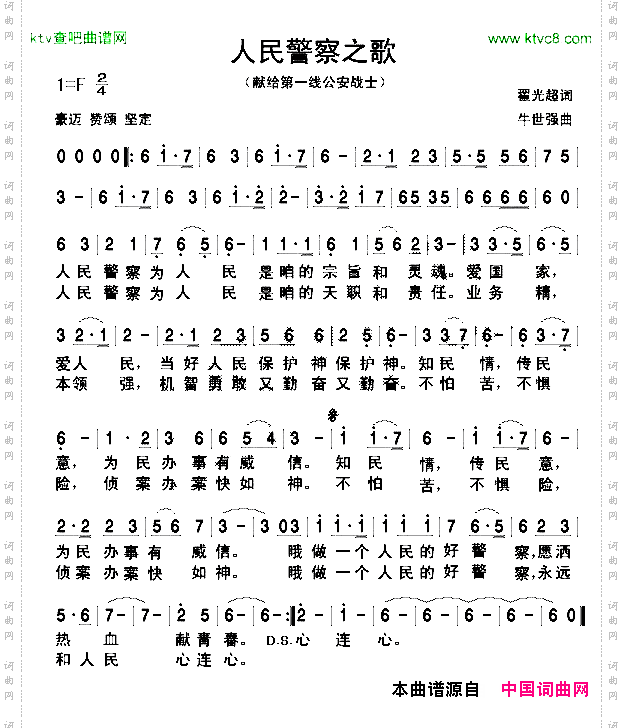 ktv查吧曲谱网
www.ktvc8.com
人民警察之歌
(献给第一线公安战士)
1=F 2/4
翟光超词
豪迈 赞颂 坚定
牛世强曲
0 0 0 0 |: 6 1·7 | 6 3 | 6 1·7 | 6 - | 2·1 | 2 3 | 5·5 | 5 6 | 7 5 |
3 - | 6 1·7 | 6 3 | 6 1·2 | 2 - | 3·1 | 2·7 | 65 35 | 6 6 6 6 | 6 0 |
6 3 | 2 1 | 7 6·5 | 6 - | 1 1 1·1 | 6 1 | 5 6 2 | 3 - | 3 3·5 | 6·5 |
人民 警察为人 民 是咱的宗旨和 灵魂。爱国 家,
人民 警察为人 民 是咱的天职和 责任。业务 精,
3 2·1 | 2 - | 2·2 | 2 1 2 3 | 5 6 6 | 2 5 | 6 - | 3·3 7 | 6 - | 6 3·7 |
爱人 民, 当好人民保护神保护神。知民 情,传民
本领 强, 机智勇敢又勤奋又勤奋。不怕 苦,不惧
6 - | 1·2 3 | 6 6 6 | 6 5 4 | 3 - | 1 1·7 | 6 - | 1 1·7 | 6 - |
意, 为民办事有威 信。知民 情,传民意,
险, 侦案办案快如 神。不怕 苦,不惧险,
2·2 | 2 3 | 5 6 7 | 3 - | 3 03 | 1 1 1·1 | 1 1 1 | 7 6·5 | 6 5 |
为民办事有 威信。 哦做一个人民的好警 察,愿洒
侦案办案快 如神。 哦做一个人民的好警 察,永远
5·6 | 7 - | 7 - | 2 5 | 6 - | 6 - :| 2 1 | 6 - | 6 - | 6 - | 6 0 ‖
热 血 献青春。D.S.心 连 心。
和人民 心连心。
本曲谱源自 中国词曲网
词曲网